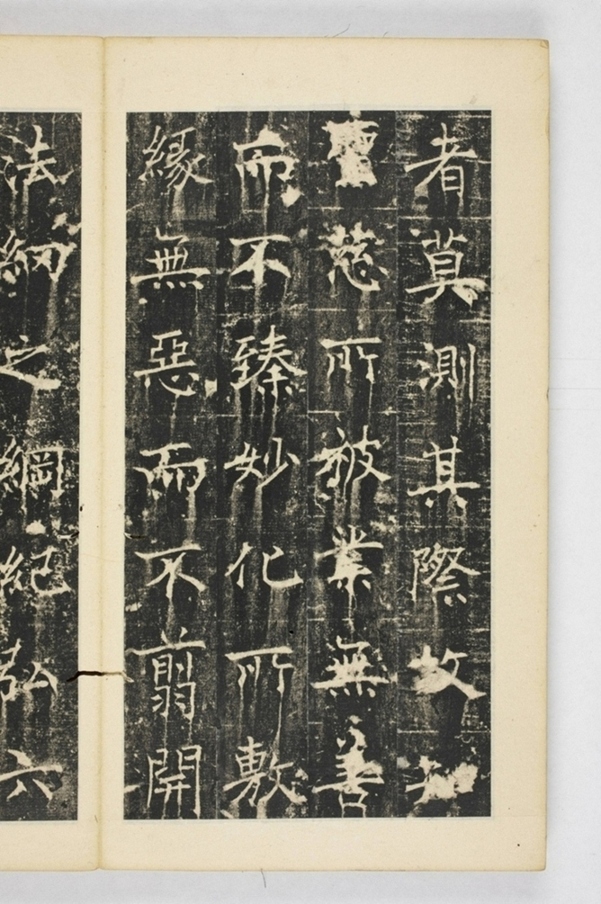 者莫測其際故知
聖慈所被業無善
而不臻妙化所敷
緣無惡而不翦開
法網之綱紀弘六